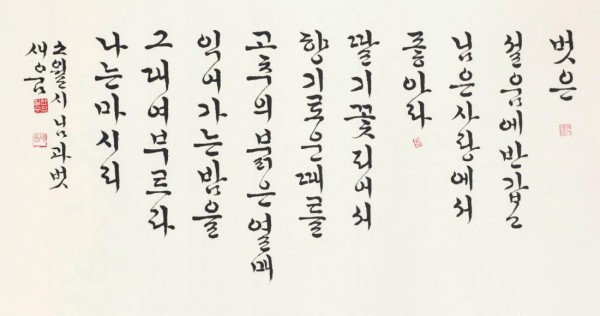 벗은
설움에 반갑고
님은 사랑에서
좋아라
딸기꽃 피어서
향기로운 때를
고추의 붉은 열매
익어가는 밤을
그대여 부르라
나는 마시리
소월시 님과 벗
새움